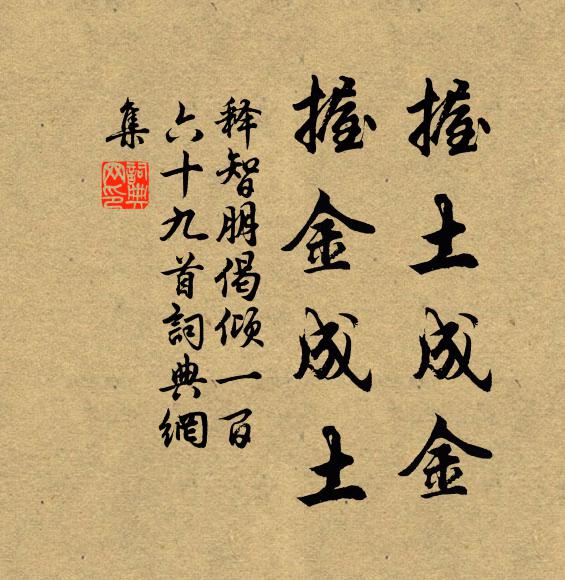 握土成金
握金成土
释智朋偈倾一百
六十九首詞典網
集
詞典
网印